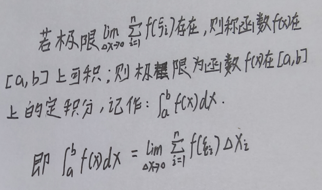 若极限 lim Δx→0 Σ i=1 n f(ξi)存在,则称函数f(x)在
[a,b]上可积;则极限为函数f(x)在[a,b]
上的定积分,记作:∫a b f(x)dx.
即 ∫a b f(x)dx = lim Δx→0 Σ i=1 n f(ξi)Δxi